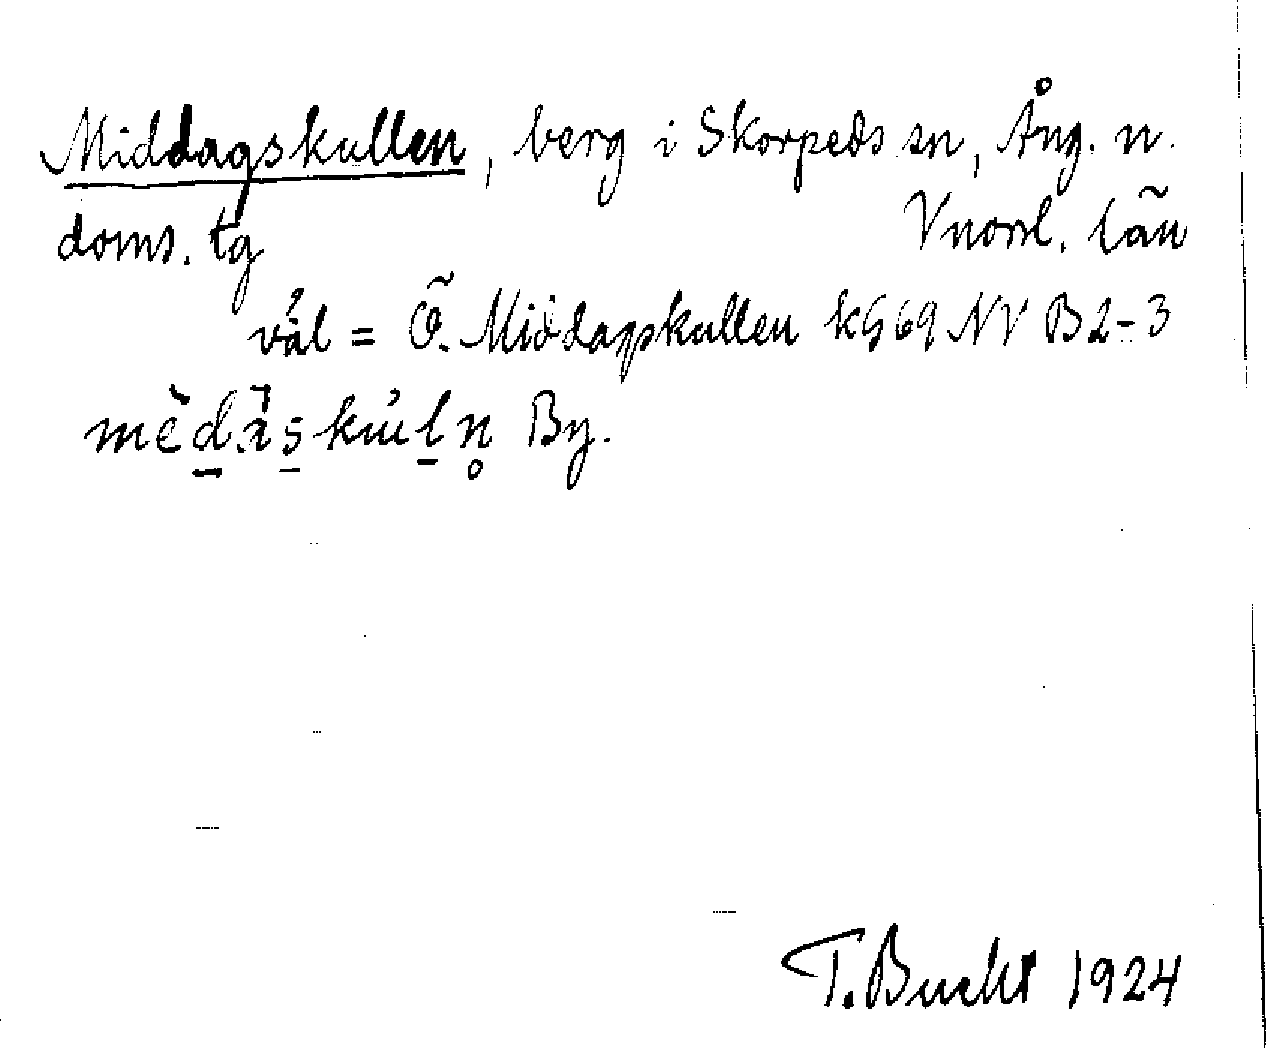 Middagskullen, berg i Skorpeds sn, Ång. n.
doms. tg Vnorrl. län
väl = Ö. Middagskullen kG 69 NV B2-3
By.
T. Bucht 1924